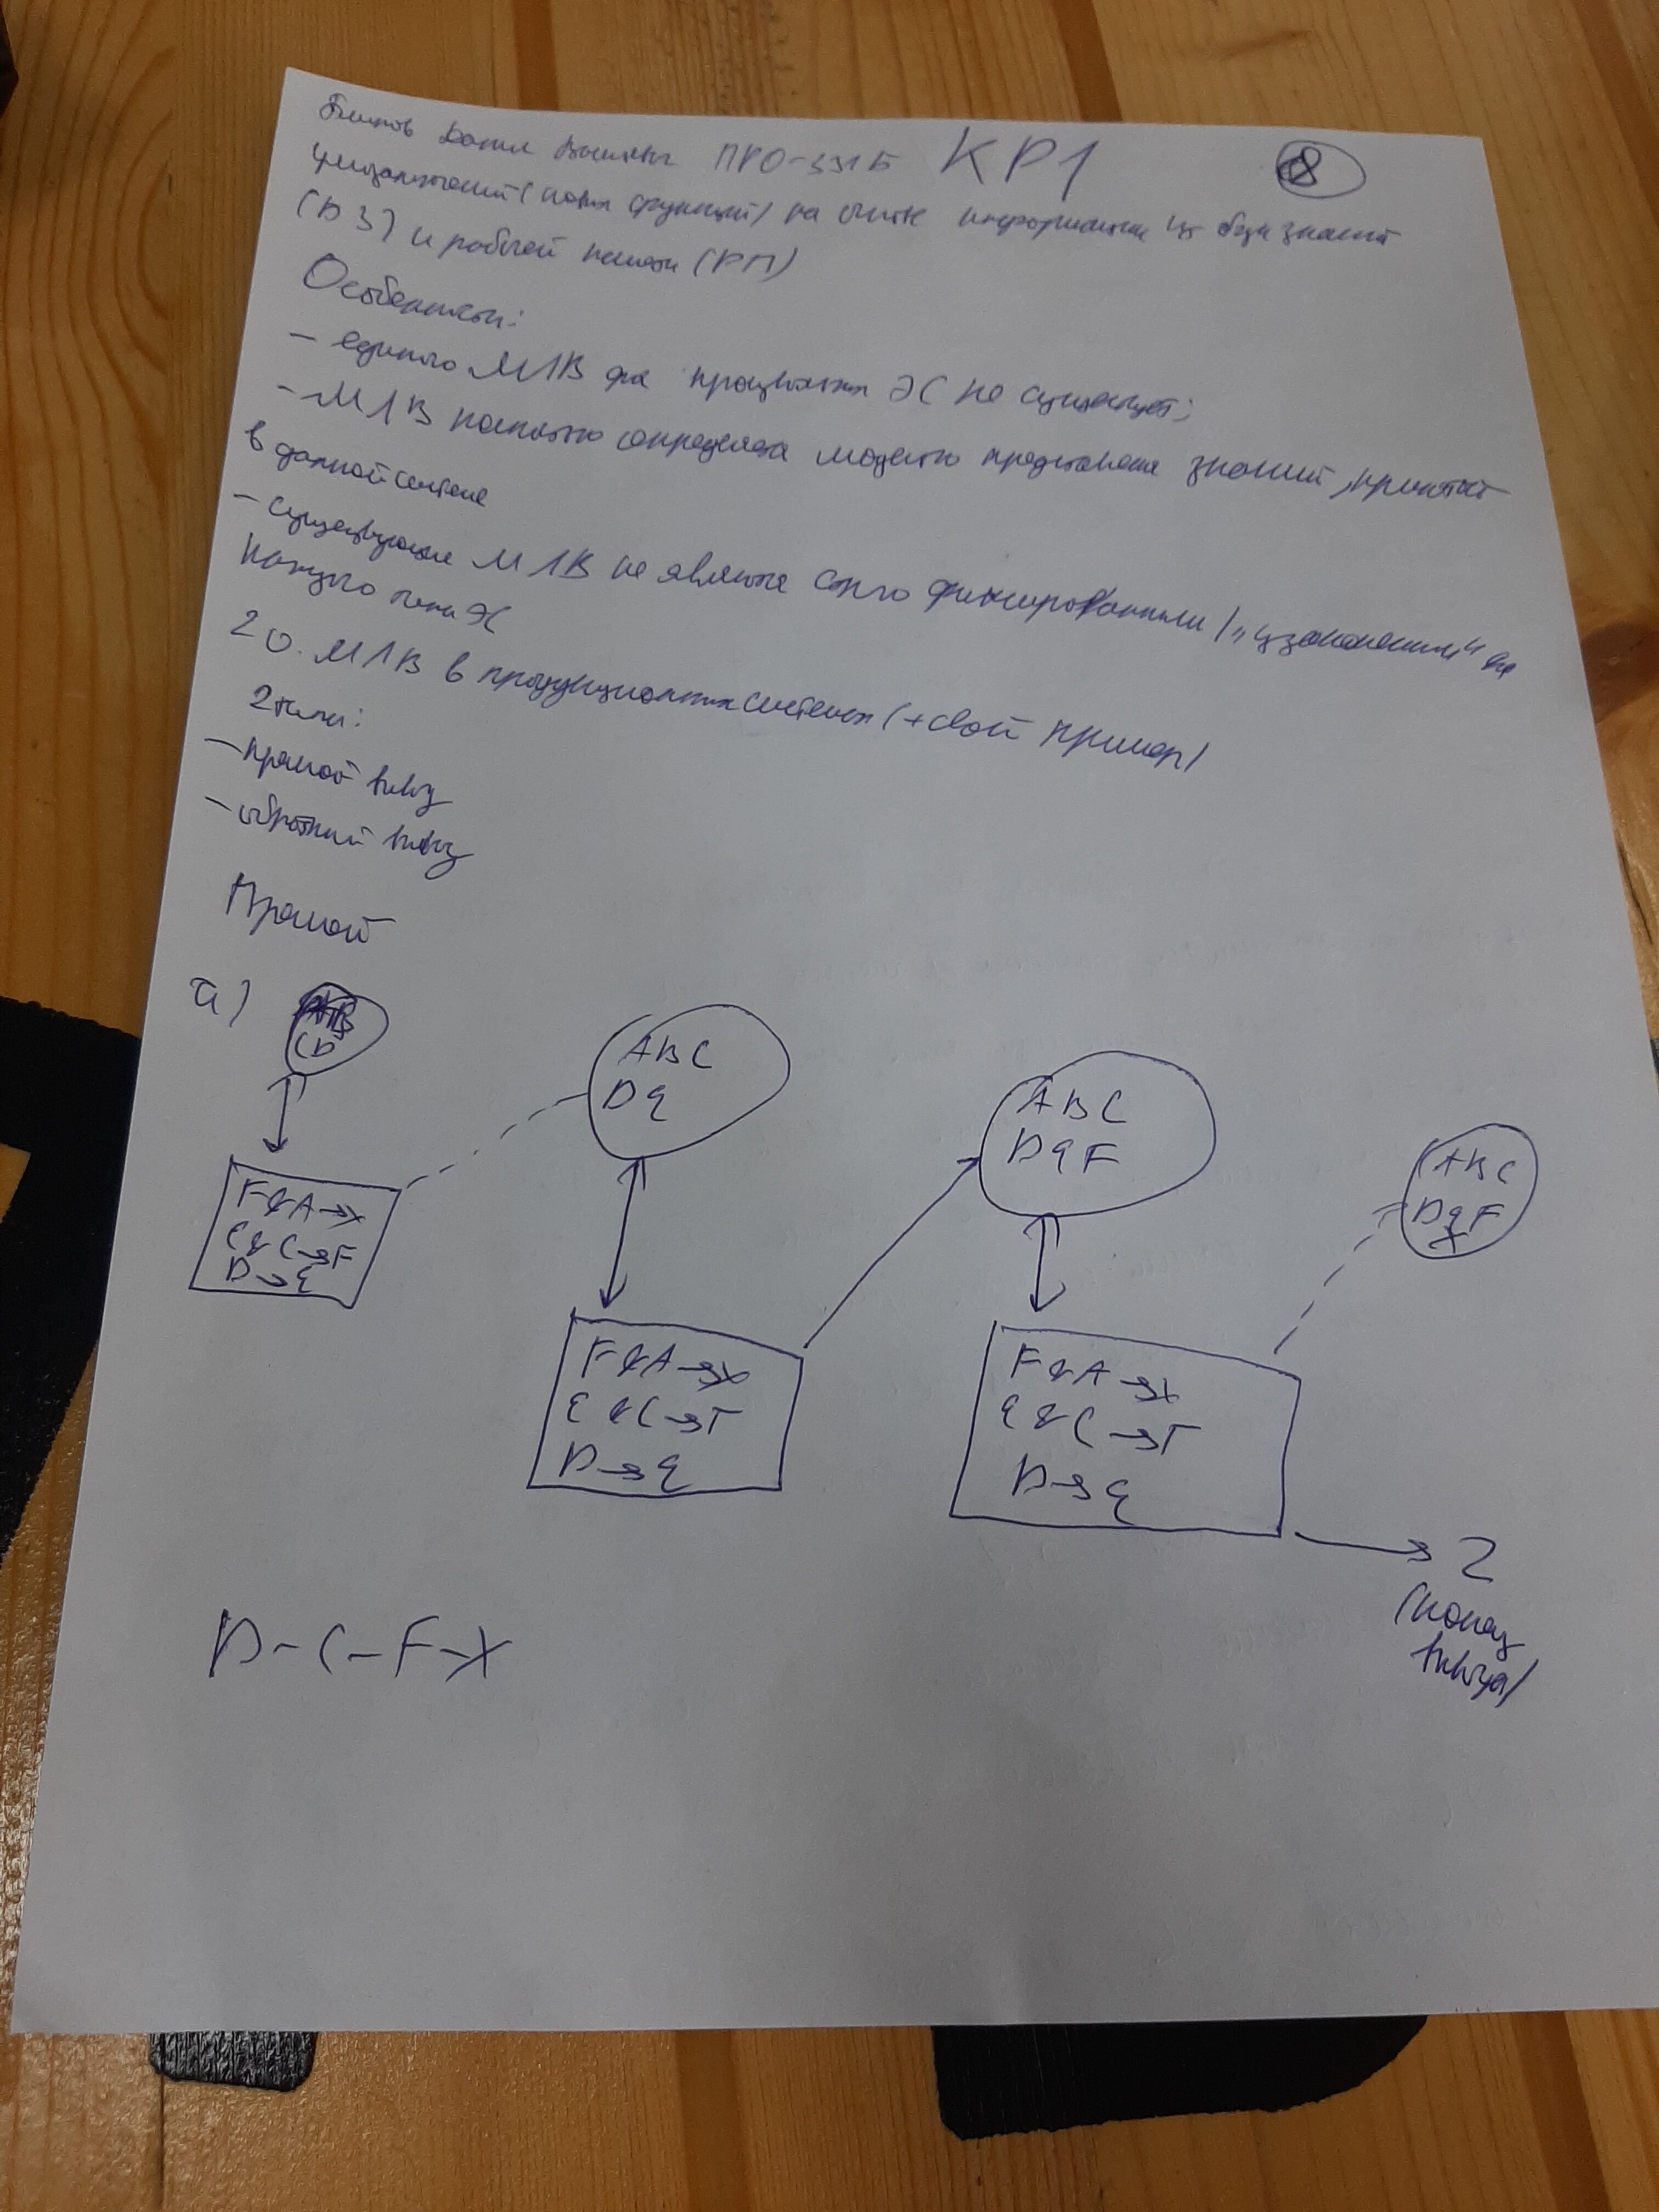 ПРО-331Б КР1 8
умозаключений (новых функций) на основе информации из базы знаний
(БЗ) и рабочей памяти (РП)
Особенности:
- единого МЛВ для ЭС не существует;
- МЛВ полностью определяется моделью представления знаний, принятой
в данной системе
- существующие МЛВ не являются строго фиксированными ("узаконенными") для
каждого типа ЭС
2 О. МЛВ в продукционных системах (+ свой пример)
2 типа:
- прямой вывод
- обратный вывод
Прямой
а)
CD
ABC
DE
ABC
DEF
ABC
DEF
X
F&A→X
E&C→F
D→E
F&A→X
E&C→F
D→E
F&A→X
E&C→F
D→E
Z
(конец
вывода)
D-C-F-X